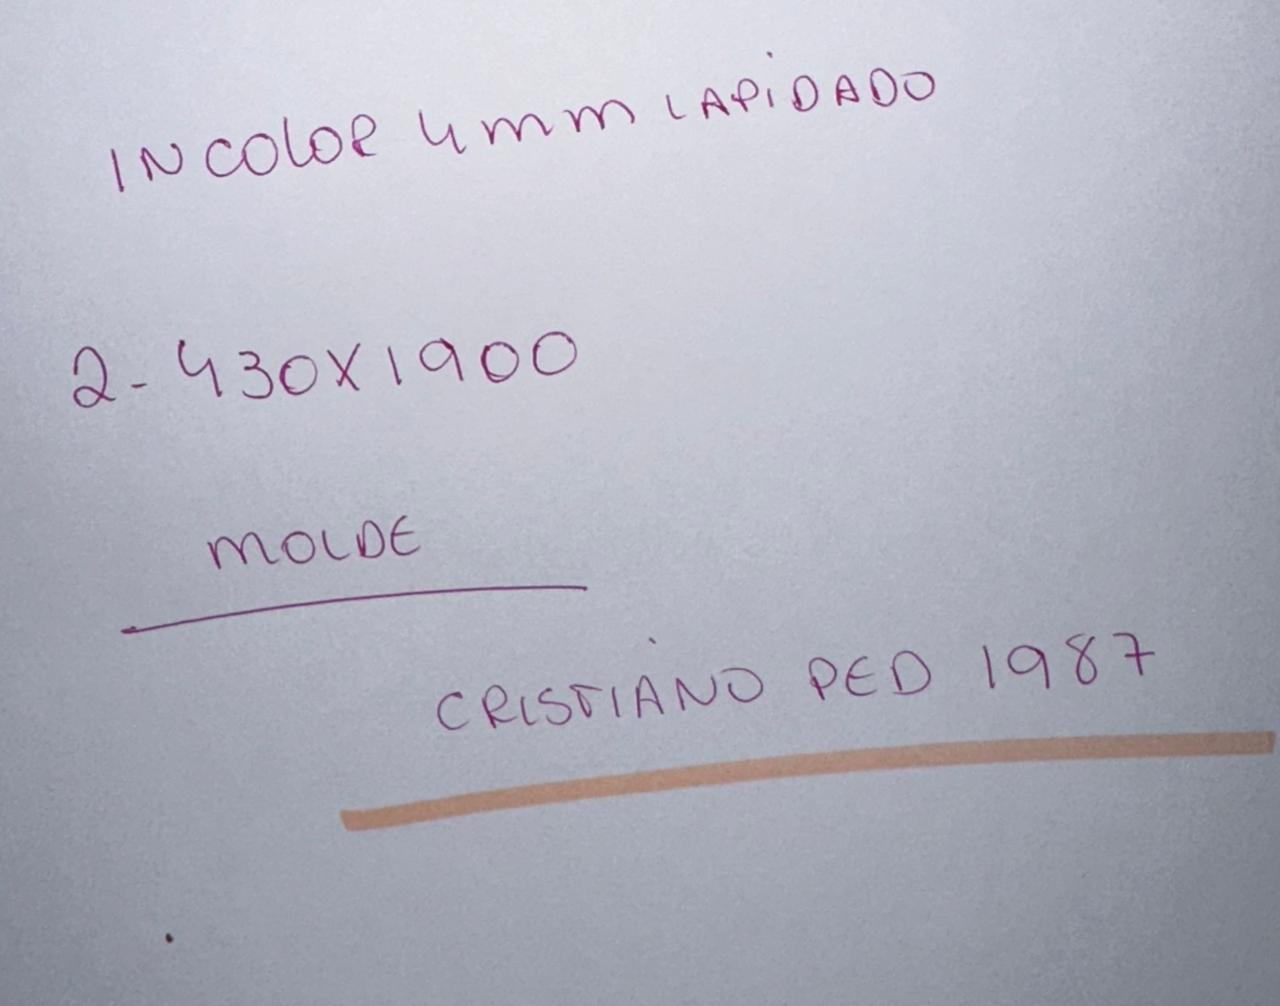 INCOLOR 4mm LAPIDADO
2- 430X1900
MOLDE
CRISTIANO PED 1987